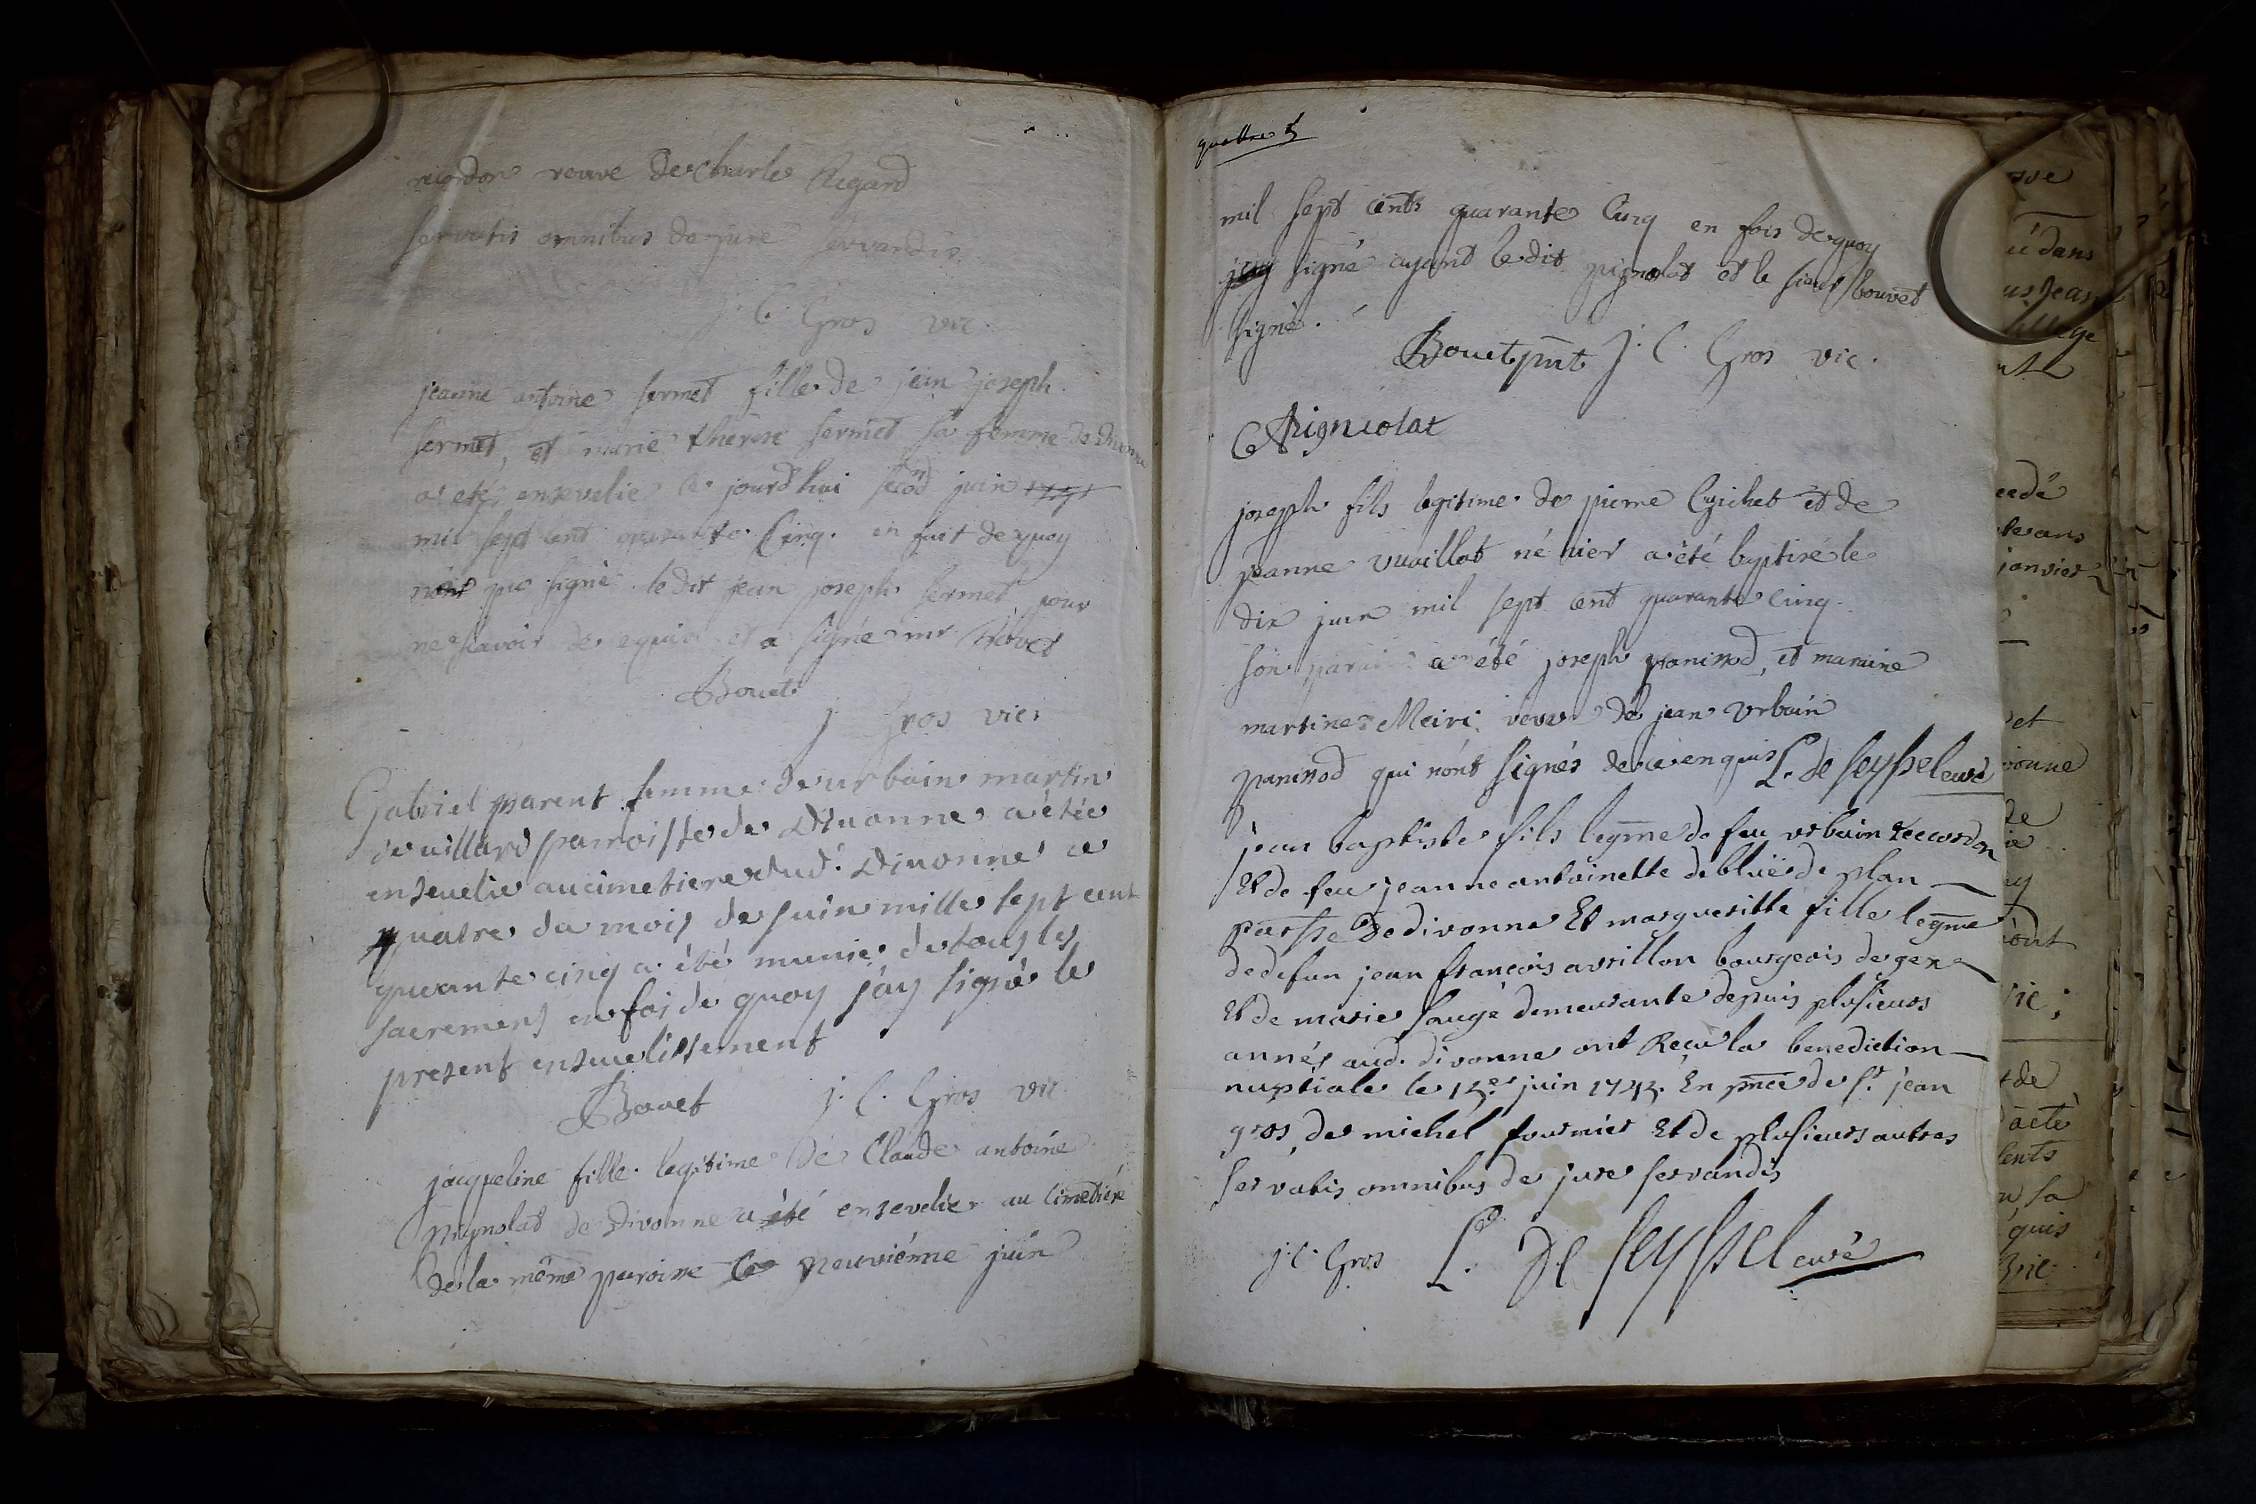 veuve de Charle Regard
servatis omnibus de jure servandis
J. C. Gros vic.
jeanne antoine sermet fille de jean joseph
sermet, et marie therese sermet sa femme de divonne
a eté ensevelie le jourd'hui second juin
mil sept cent quarante Cinq. en fait de quoy
signé le dit jean joseph sermet pour
ne sçavoir deequis et a signé mr Bovet
Bouet
J. Gros vic.
Gabriel parent femme de urbain martin
de uillard parroisse de Diuonne a étée
enseuelie au cimetiere dud. Diuonne ce
quatre du mois de juin mille sept cent
quarante cinq a été munie de tous les
sacremens en foi de quoy j'ay signé le
present enseuelissement
Bouet J. C. Gros vic
jacqueline fille legitime de Claude antoine
pignolat de Divonne a été ensevelie au Cimetiere
de la même paroisse le neuviéme juin
quattre
mil sept cents quarante Cinq en fois de quoy
jay signé ayant le dit pignolat et le sieur bouvet
signé.
Bouet pnt J. C. Gros vic.
C A pignicolat
joseph fils legitime de pierre Cuichet et de
jeanne vuaillat né hier a été baptisé le
dix juin mil sept cent quarante cinq.
son parain a été joseph panissod, et maraine
martine Meiri veuve de jean urbain
panissod qui n'ont signés de ce enquis L. de Seyssel curé
jean baptiste fils legme de feu urbain Reccordon
Et de feu jeanne antoinette debluë de plan
parsse De divonne Et margueritte fille legme
de defun jean françois avrillon bourgeois de gex
Et de marie saugé demeurante depuis plusieurs
annés aud. divonne ont Reçu la benediction
nuptiale le 15e juin 1745. En pnce de sr. jean
gros, de michel fournier Et de plusieurs autres
servatis omnibus de jure servandis
j. c. Gros L. De Seyssel curé